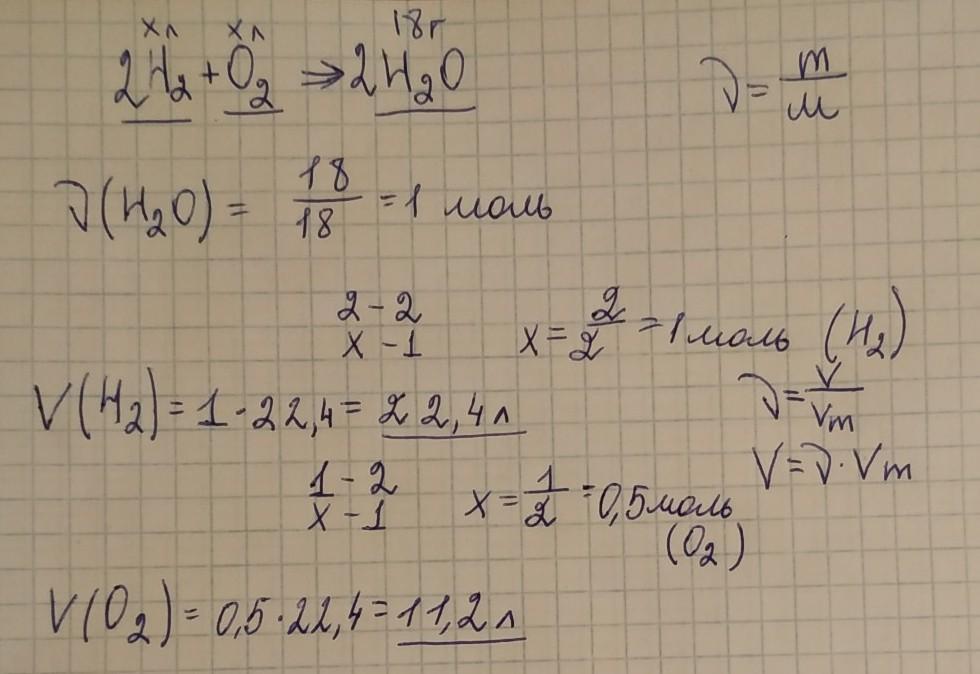 х л х л 18г
2H₂ + O₂ ⇒ 2H₂O
ν = m/M
ν(H₂O) = 18/18 = 1 моль
2 - 2
x - 1
x = 2/2 = 1 моль (H₂)
V(H₂) = 1 · 22,4 = 22,4 л
ν = V/Vm
V = ν · Vm
1 - 2
x - 1
x = 1/2 = 0,5 моль
(O₂)
V(O₂) = 0,5 · 22,4 = 11,2 л